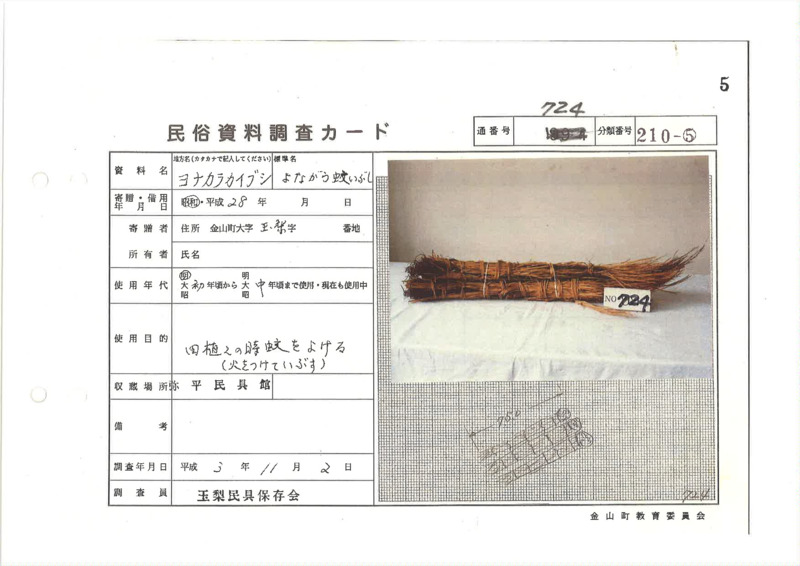 5
724
民俗資料調査カード
通番号
分類番号 210-⑤
資料名
地方名(カタカナで記入してください) 標準名
ヨナカラカイブシ よながら蚊いぶし
寄贈・借用年月日
昭和・平成 28 年 月 日
寄贈者 住所 金山町大字 玉梨 字 番地
所有者 氏名
使用年代 明大昭 初年頃から 明大昭 中年頃まで使用・現在も使用中
使用目的
田植えの時蚊をよける
(火をつけていぶす)
収蔵場所 弥平民具館
備考
調査年月日 平成 3 年 11 月 2 日
調査員 玉梨民具保存会
NO 724
750
724
金山町教育委員会